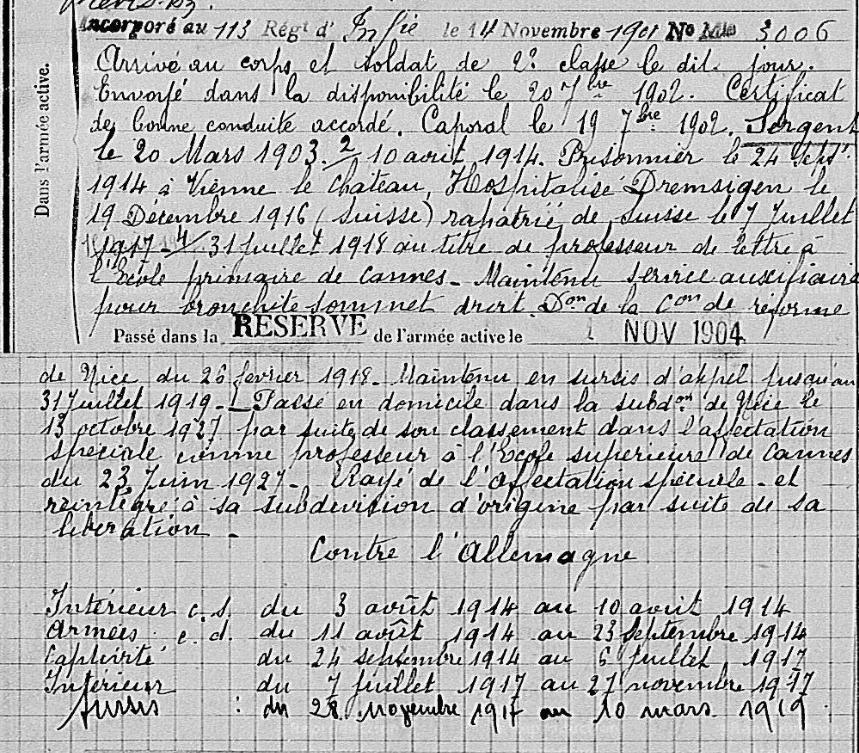 Incorporé au 113 Régt d' Infie le 14 Novembre 1901 No Mle 3006
Dans l'armée active.
Arrivé au corps et soldat de 2e classe le dit jour.
Envoyé dans la disponibilité le 20 7bre 1902. Certificat
de bonne conduite accordé. Caporal le 19 7bre 1902. Sergent
le 20 Mars 1903. 2/ 10 août 1914. Prisonnier le 24 Sept.
1914 à Vienne le Chateau, Hospitalisé Dremsigen le
19 Décembre 1916 (Suisse) rapatrié de Suisse le 7 Juillet
1917 - 4/ 31 juillet 1918 au titre de professeur de lettre à
l'Ecole primaire de Cannes - Maintenu service auxiliaire
pour bronchite sommet droit. Don de la Con de réforme
Passé dans la RESERVE de l'armée active le 1 NOV 1904
de Nice du 26 février 1918 - Maintenu en sursis d'appel jusqu'au
31 Juillet 1919 - Passé en domicile dans la subdon de Nice le
13 octobre 1927 par suite de son classement dans l'affectation
spéciale comme professeur à l'Ecole supérieure de Cannes
du 23 Juin 1927 - Rayé de l'affectation spéciale - et
réintégré à sa subdivision d'origine par suite de sa
libération -
Contre l'Allemagne
Intérieur c.s. du 3 août 1914 au 10 août 1914
Armées c.d. du 11 août 1914 au 23 septembre 1914
Captivité du 24 septembre 1914 au 6 juillet 1917
Intérieur du 7 juillet 1917 au 27 novembre 1917
Sursis : du 28 novembre 1917 au 10 mars 1919